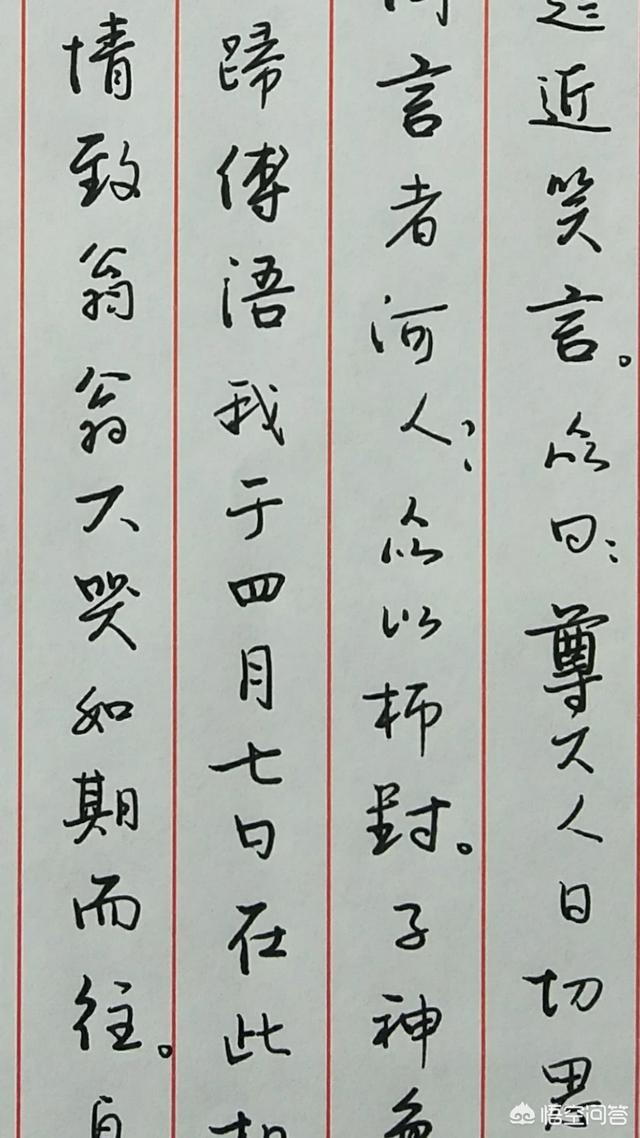 近笑言。众曰：尊大人日切思
问言者何人：众以柳對。子神色
歸傳语我于四月七日在此相
情致翁翁大哭如期而往。自
悟空问答